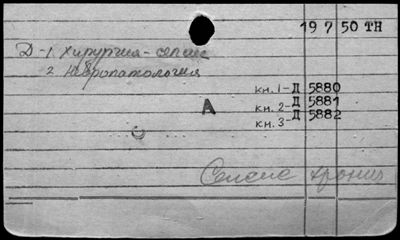 19 7 50 ТН
Д-1 хирургия - сепсис
2 Невропатология
кн. 1-Д 5880
А кн. 2-Д 5881
кн. 3- Д 5882
Сепсис хронич